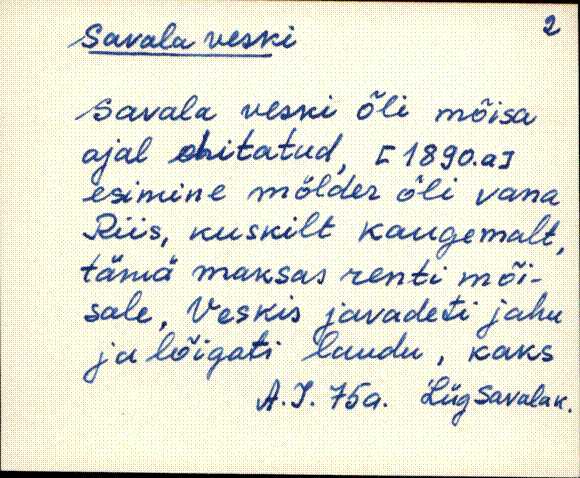 2
Savala veski
Savala veski õli mõisa
ajal ehitatud, [1890.a]
esimine mölder õli vana
Riis, kuskilt kaugemalt,
tämä maksas renti mõi-
sale, Veskis javadeti jahu
ja lõigati laudu, kaks
A.I. 75a. Lüg Savala k.